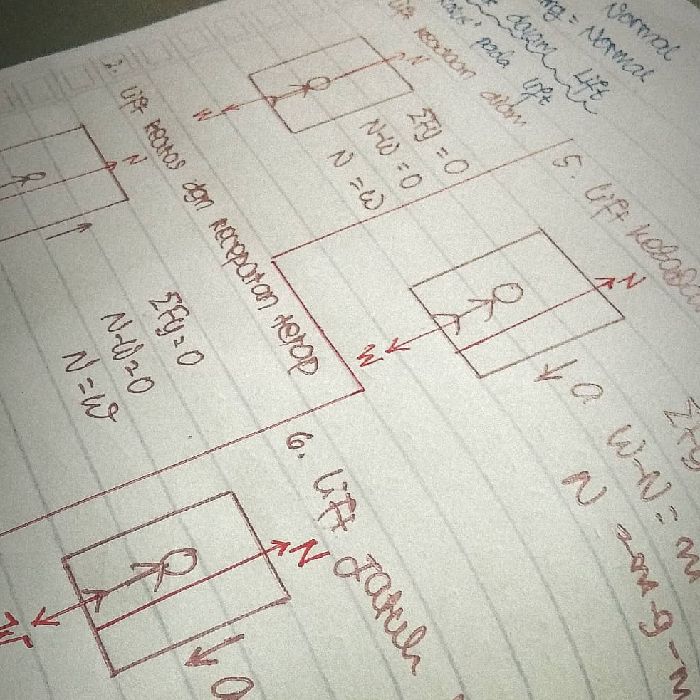 Normal
= Normal
dalam Lift
pada lift
Lift keadaan diam
N
W
ΣFy = 0
N-W = 0
N = W
2. Lift keatas dgn kecepatan tetap
N
ΣFy = 0
N-W = 0
N = W
5. Lift kebawah
N
W
a
ΣFy
W-N = m
N
6. Lift Jatuh
N
W
a